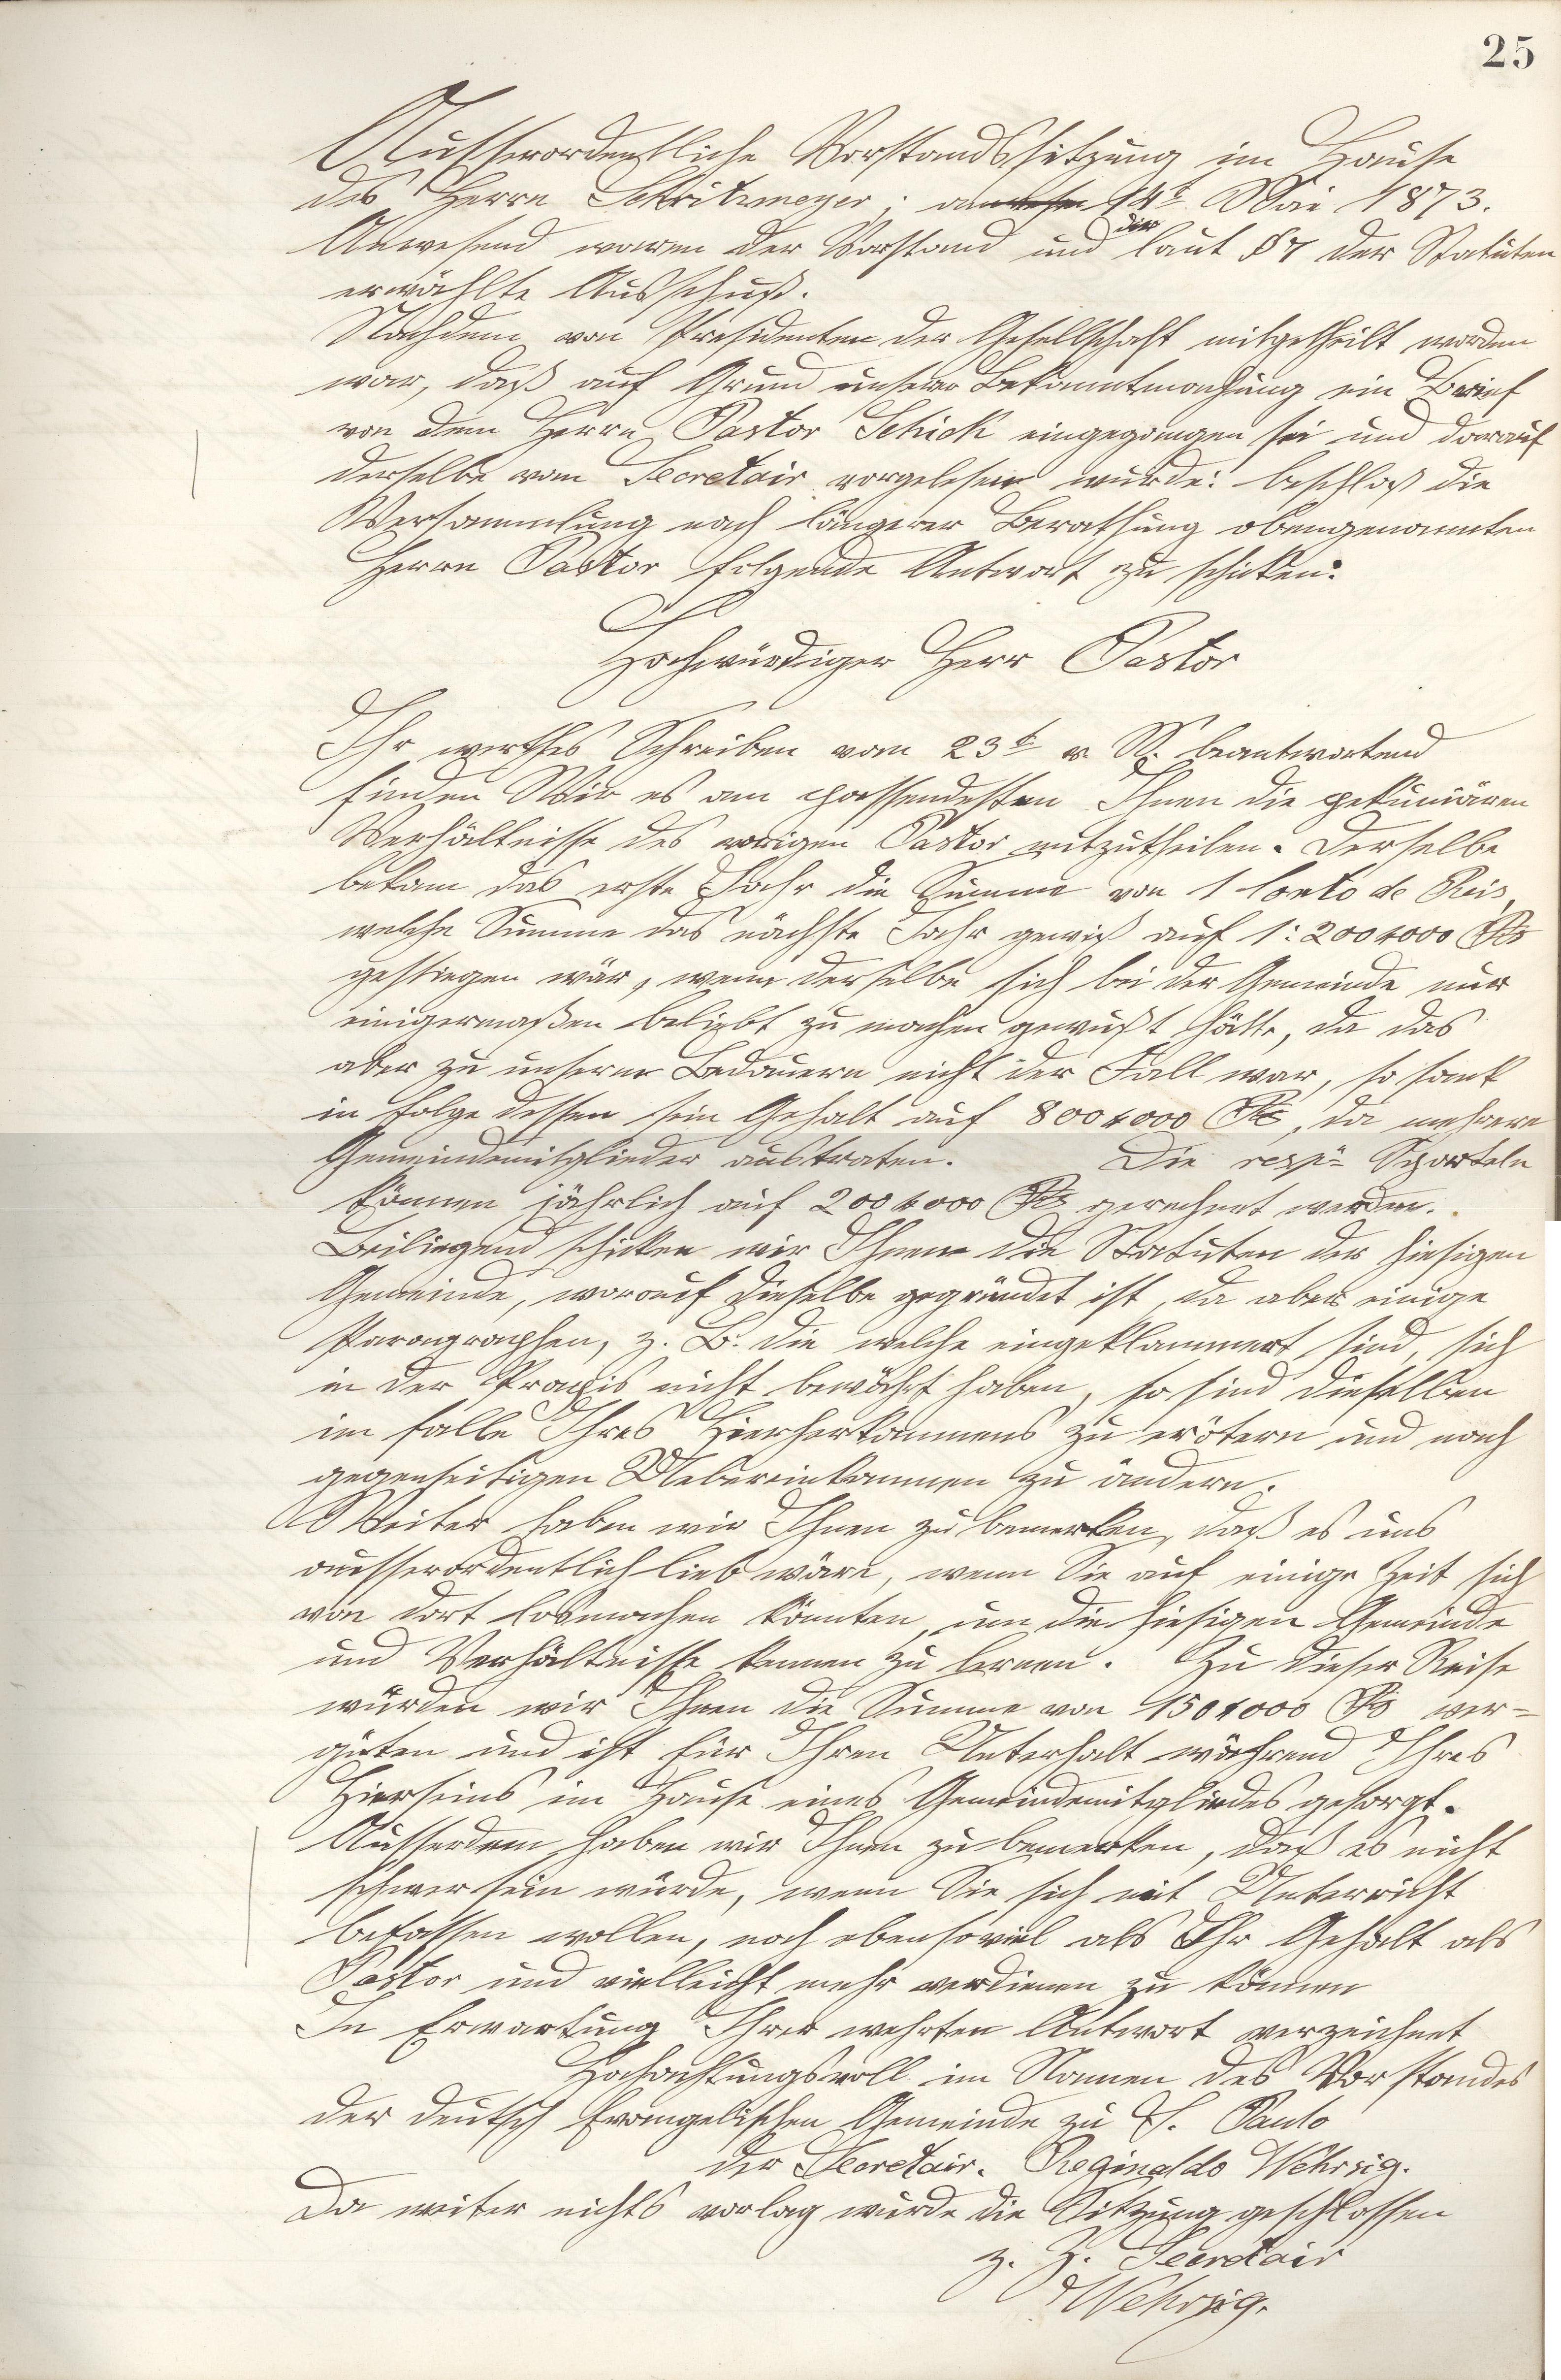 25
Ausserordentliche Vorstandssitzung im Hause
des Herrn Schritzmeyer; am 14t Mai 1873.
Anwesend waren der Vorstand und der laut §7 der Statuten
erwählte Ausschuß.
Nachdem von Presidenten der Gesellschaft mitgetheilt worden
war, daß auf Grund unserer Bekanntmachung ein Brief
von dem Herrn Pastor Schick eingegangen sei und darauf
derselbe vom Secretair vorgelesen wurde: beschloß die
Versammlung nach längerer Berathung obengenannten
Herrn Pastor folgende Antwort zu schicken:
Hochwürdiger Herr Pastor
Ihr werthes Schreiben vom 23t v. M. beantwortend
finden Wir es am passendesten Ihnen die pekuniären
Verhältnisse des vorigen Pastor mitzutheilen. Derselbe
bekam das erste Jahr die Summe von 1 Conto de Reis,
welche Summe das nächste Jahr gewiß auf 1:200$000 Rs
gestiegen wär, wenn derselbe sich bei der Gemeinde nur
einigermaßen beliebt zu machen gewußt hätte, da das
aber zu unserm Bedauern nicht der Fall war, so sank
in folge dessen sein Gehalt auf 800$000 Rs, da mehrere
Gemeindemitglieder austraten. Die resp. Sporteln
können jährlich auf 200$000 Rs gerechnet werden.
Beiliegend schicken wir Ihnen die Statuten der hiesigen
Gemeinde, worauf dieselbe gegründet ist, da aber einige
Paragraphen, z. B. die welche eingeklammert sind, sich
in der Praxis nicht bewährt haben, so sind dieselben
im falle Ihres Hierherkommens zu erötern und nach
gegenseitigen Uebereinkommen zu ändern.
Weiter haben wir Ihnen zu bemerken, daß es uns
ausserordentlich lieb wäre, wenn Sie auf einige Zeit sich
von dort losmachen könnten, um die hiesigen Gemeinde
und Verhältnisse kennen zu lernen. Zu dieser Reise
würden wir Ihnen die Summe von 150$000 Rs ver=
güten und ist für Ihren Unterhalt während Ihres
Hierseins im Hause eines Gemeindemitgliedes gesorgt.
Ausserdem haben wir Ihnen zu bemerken, daß es nicht
schwer sein würde, wenn Sie sich mit Unterricht
befassen wollen, noch ebensoviel als Ihr Gehalt als
Pastor und vielleicht mehr verdienen zu können
In Erwartung Ihrer wehrten Antwort verzeichnet
Hochachtungsvoll im Namen des Vorstandes
der deutsch Evangelischen Gemeinde zu S. Paulo
der Secretair. Reginaldo Wehrsig.
Da weiter nichts vorlag wurde die Sitzung geschlossen
z. Z. Secretair
Wehrsig.